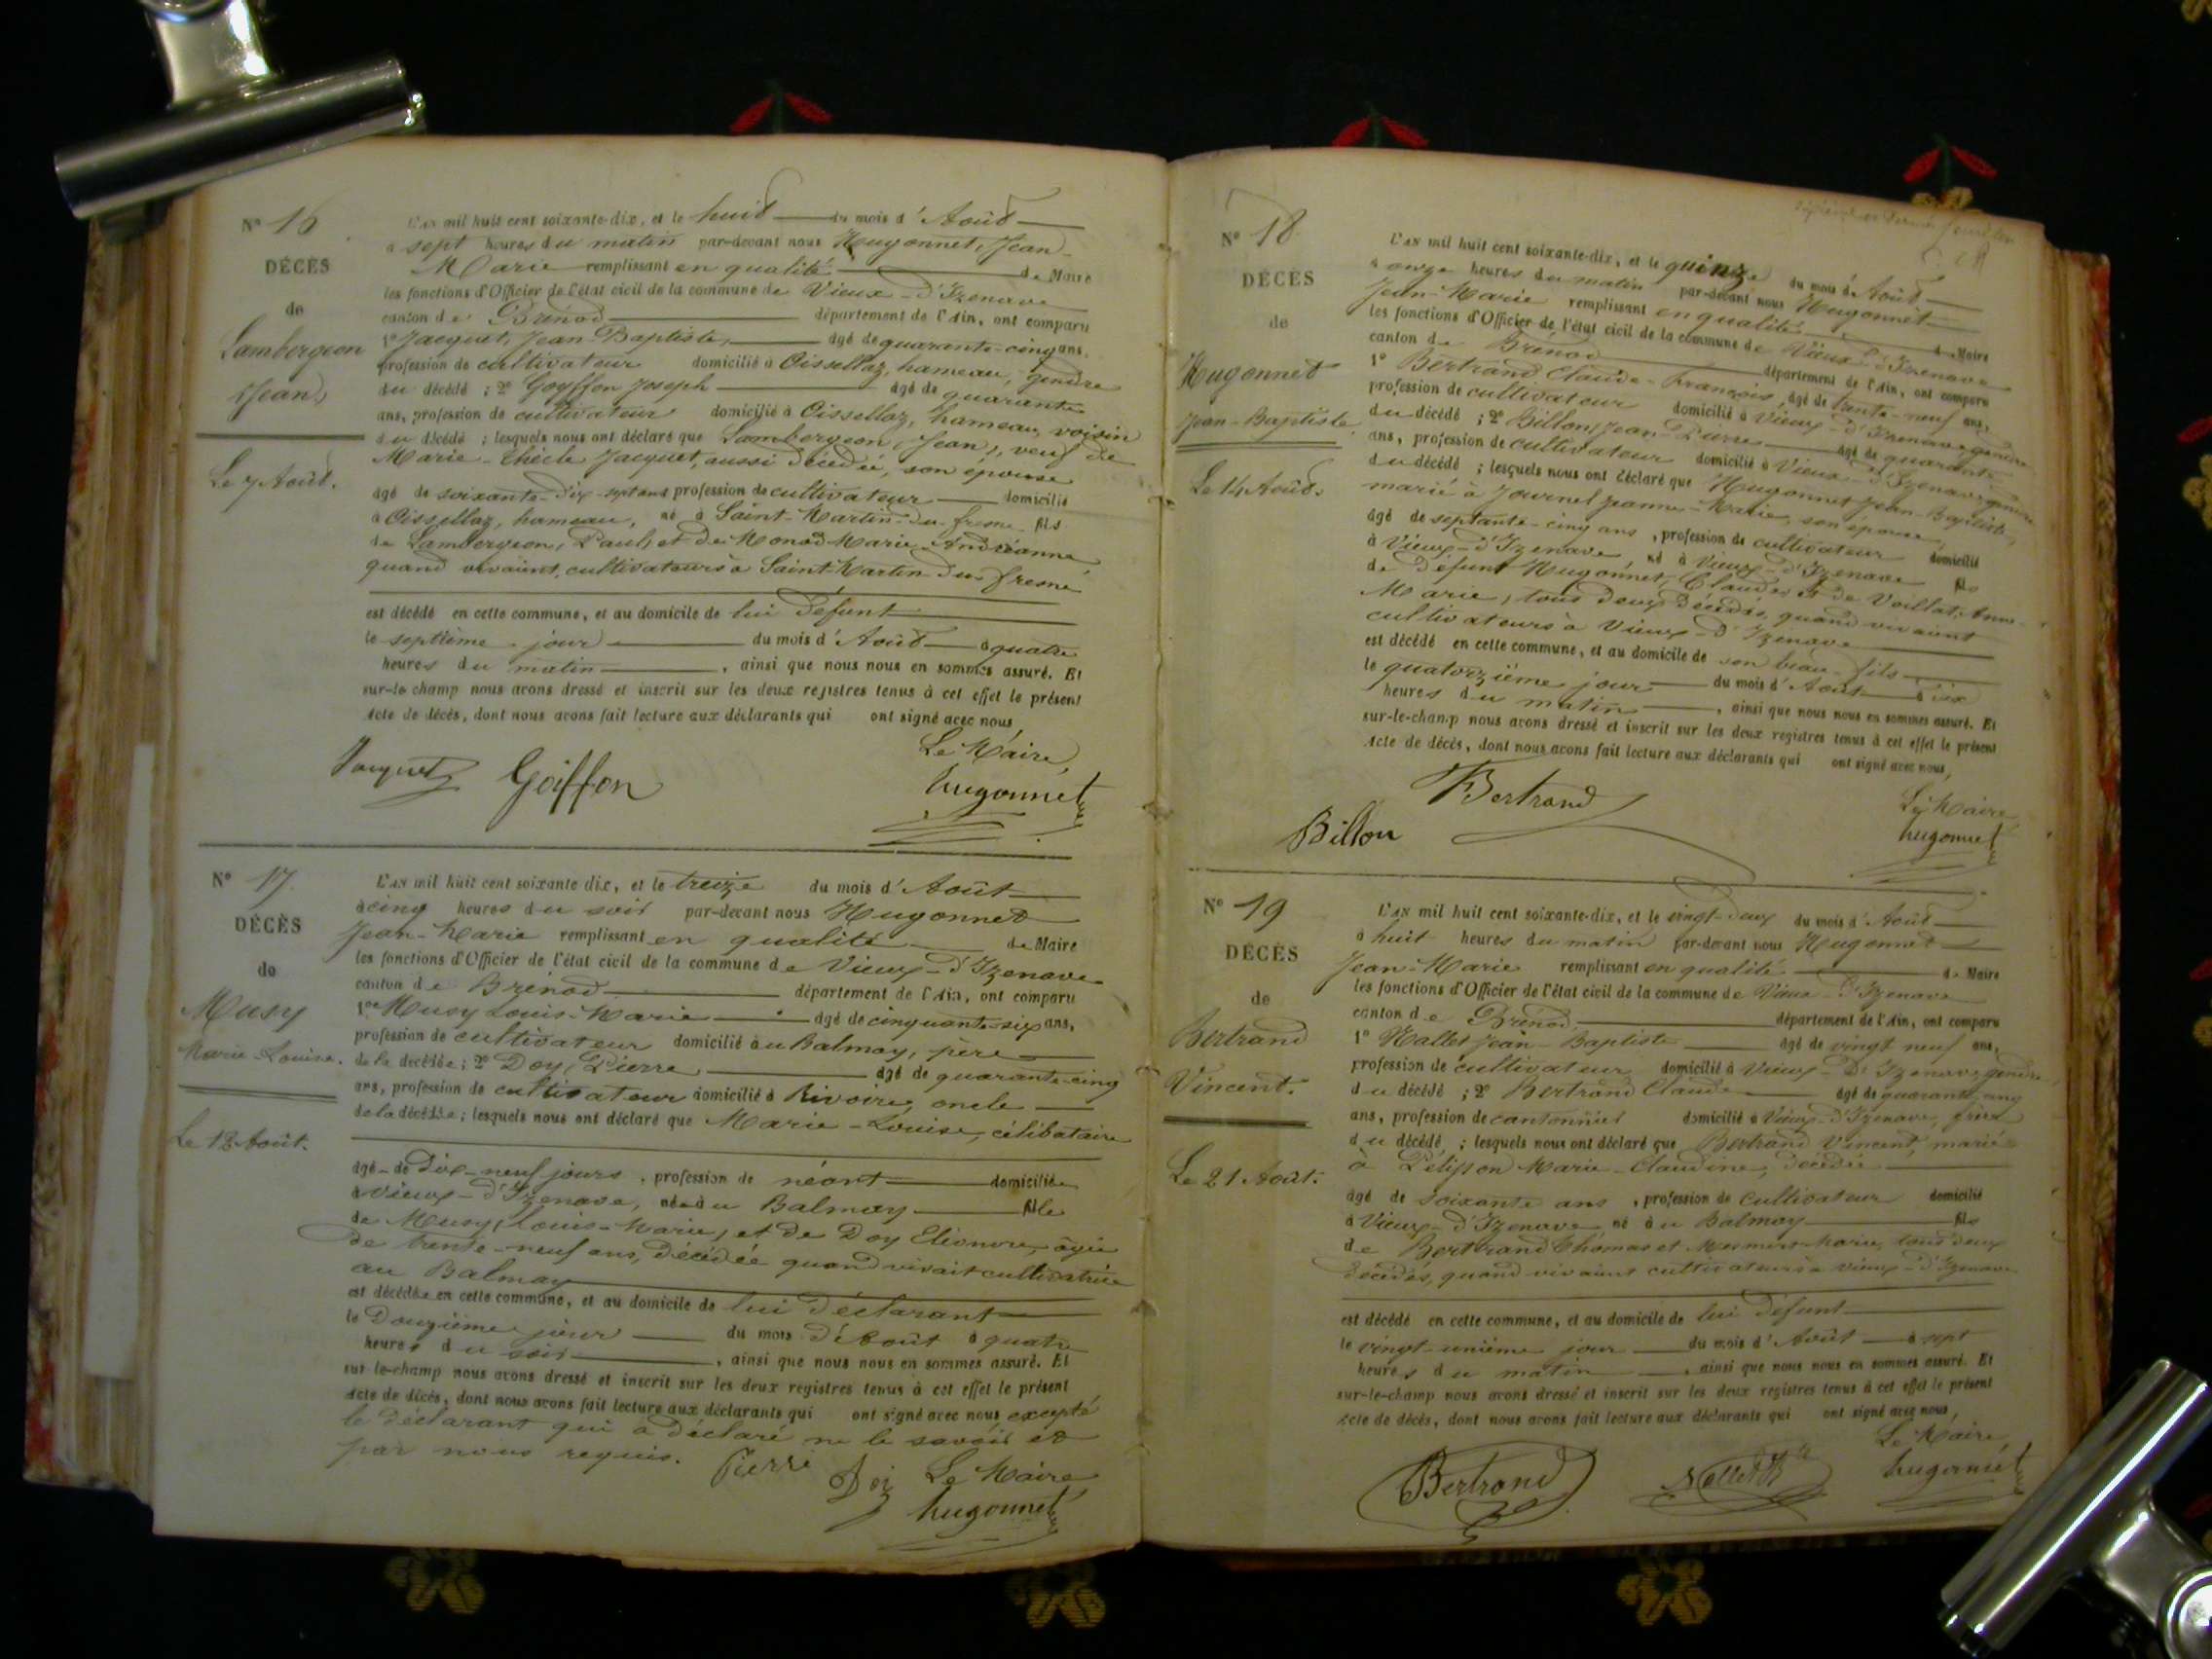 Nº 16
DÉCÈS
de
Lambergeon
Jean
Le 7 Août.
L'AN mil huit cent soixante-dix, et le huit du mois d'Août
à sept heures du matin par-devant nous Hugonnet, Jean-
Marie remplissant en qualité de Maire
les fonctions d'Officier de l'état civil de la commune de Vieux-d'Izenave
canton de Brénod département de l'Ain, ont comparu
1º Jacquet, Jean-Baptiste, âgé de quarante-cinq ans,
profession de cultivateur domicilié à Oissellaz, hameau, gendre
du décédé ; 2º Goyffon Joseph âgé de quarante
ans, profession de cultivateur domicilié à Oissellaz, hameau, voisin
du décédé ; lesquels nous ont déclaré que Lambergeon, Jean, veuf de
Marie-Thècle Jacquet, aussi décédée, son épouse
âgé de soixante-dix-sept ans profession de cultivateur domicilié
à Oissellaz, hameau, né à Saint-Martin-du-fresne fils
de Lambergeon, Paul, et de Monod Marie-Andréanne
quand vivaient, cultivateurs à Saint-Martin-du-fresne
est décédé en cette commune, et au domicile de lui défunt
le septième jour du mois d'Août à quatre
heures du matin , ainsi que nous nous en sommes assuré. Et
sur-le champ nous avons dressé et inscrit sur les deux registres tenus à cet effet le présent
acte de décès, dont nous avons fait lecture aux déclarants qui ont signé avec nous
Le Maire,
Jacquet Goiffon hugonnet
Nº 17
DÉCÈS
de
Musy
Marie-Louise.
Le 12 Août.
L'AN mil huit cent soixante dix, et le treize du mois d'Août
à cinq heures du soir par-devant nous Hugonnet
Jean-Marie remplissant en qualité de Maire
les fonctions d'Officier de l'état civil de la commune de Vieux-d'Izenave
canton de Brénod département de l'Ain, ont comparu
1º Musy Louis-Marie âgé de cinquante-six ans,
profession de cultivateur domicilié au Balmay, père
de la décédée ; 2º Doy, Pierre âgé de quarante-cinq
ans, profession de cultivateur domicilié à Rivoire, oncle
de la décédée ; lesquels nous ont déclaré que Marie-Louise, célibataire
âgée de dix-neuf jours , profession de néant domiciliée
à Vieux-d'Izenave, née au Balmay fille
de Musy, Louis-Marie, et de Doy Eléonore, âgée
de trente-neuf ans, décédée quand vivait cultivatrice
au Balmay
est décédée en cette commune, et au domicile de lui déclarant
le Douzième jour du mois d'Août à quatre
heures du soir , ainsi que nous nous en sommes assuré. Et
sur le-champ nous avons dressé et inscrit sur les deux registres tenus à cet effet le présent
acte de décès, dont nous avons fait lecture aux déclarants qui ont signé avec nous excepté
le déclarant qui a déclaré ne le savoir et
par nous requis. Pierre Doi Le Maire
hugonnet
Nº 18
DÉCÈS
de
Hugonnet
Jean-Baptiste
Le 14 Août.
L'AN mil huit cent soixante-dix, et le quinze du mois d'Août
à onze heures du matin par-devant nous Hugonnet
Jean-Marie remplissant en qualité de Maire
les fonctions d'Officier de l'état civil de la commune de Vieux-d'Izenave
canton de Brénod département de l'Ain, ont comparu
1º Bertrand Claude-François, âgé de trente-neuf ans,
profession de cultivateur domicilié à Vieux-d'Izenave, gendre
du décédé ; 2º Billon, Jean-Pierre âgé de quarante
ans, profession de cultivateur domicilié à Vieux-d'Izenave, gendre
du décédé ; lesquels nous ont déclaré que Hugonnet Jean-Baptiste,
marié à Journel Jeanne-Marie, son épouse,
âgé de septante-cinq ans , profession de cultivateur domicilié
à Vieux-d'Izenave né à Vieux-d'Izenave fils
de défunt Hugonnet, Claude, et de Voillat, Anne-
Marie, tous deux décédés, quand vivaient
cultivateurs à Vieux-d'Izenave
est décédé en cette commune, et au domicile de son beau-fils
le quatorzième jour du mois d'Août à dix
heures du matin , ainsi que nous nous en sommes assuré. Et
sur-le-champ nous avons dressé et inscrit sur les deux registres tenus à cet effet le présent
acte de décès, dont nous avons fait lecture aux déclarants qui ont signé avec nous,
Bertrand Le Maire,
Billon hugonnet
Nº 19
DÉCÈS
de
Bertrand
Vincent.
Le 21 Août.
L'AN mil huit cent soixante-dix, et le vingt-deux du mois d'Août
à huit heures du matin par-devant nous Hugonnet
Jean-Marie remplissant en qualité de Maire
les fonctions d'Officier de l'état civil de la commune de Vieux-d'Izenave
canton de Brénod, département de l'Ain, ont comparu
1º Nallet Jean-Baptiste âgé de vingt neuf ans,
profession de cultivateur domicilié à Vieux-D'Izenave, gendre
du décédé ; 2º Bertrand Claude âgé de quarante cinq
ans, profession de cantonnier domicilié à Vieux-d'Izenave, frère
du décédé ; lesquels nous ont déclaré que Bertrand Vincent, marié
à Pélisson Marie-Claudine, décédée
âgé de soixante ans , profession de cultivateur domicilié
à Vieux-d'Izenave né au Balmay fils
de Bertrand Thomas et Marie, tous deux
décédés, quand vivaient cultivateurs à vieux-d'Izenave
est décédé en cette commune, et au domicile de lui défunt
le vingt-unième jour du mois d'Août à sept
heures du matin , ainsi que nous nous en sommes assuré. Et
sur-le-champ nous avons dressé et inscrit sur les deux registres tenus à cet effet le présent
acte de décès, dont nous avons fait lecture aux déclarants qui ont signé avec nous,
Le Maire,
Bertrand Nallet hugonnet